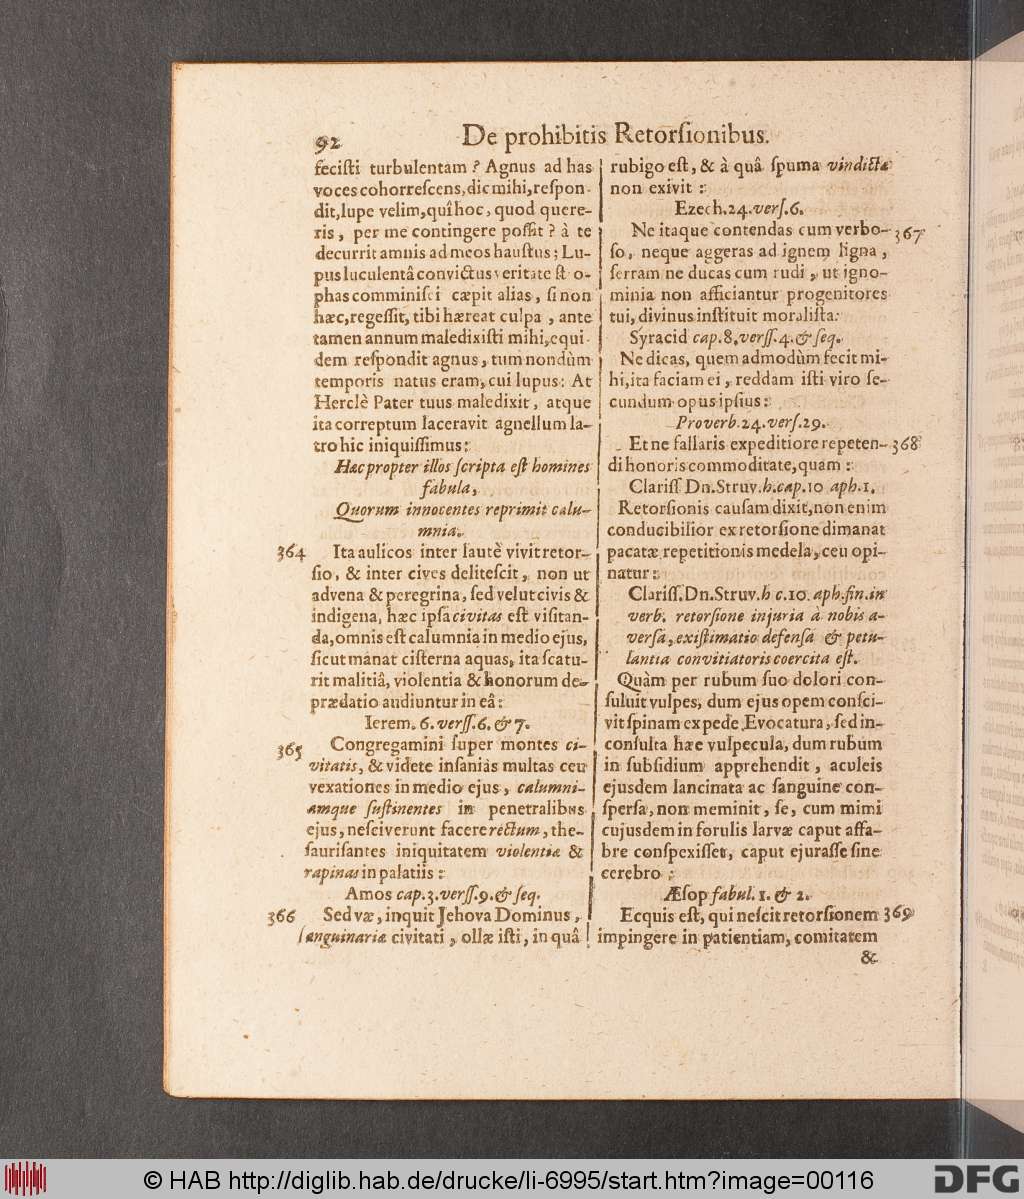 92
De prohibitis Retorſionibus.
feciſti turbulentam? Agnus ad has
voces cohorreſcens, dic mihi, reſpon-
dit, lupe velim, quî hoc, quod quere-
ris, per me contingere poſſit? à te
decurrit amnis ad meos hauſtus; Lu-
pus luculentâ convictus veritate ſto-
phas comminiſci cæpit alias, ſi non
hæc, regeſſit, tibi hæreat culpa, ante
tamen annum maledixiſti mihi, equi-
dem reſpondit agnus, tum nondùm
temporis natus eram, cui lupus: At
Herclè Pater tuus maledixit, atque
ita correptum laceravit agnellum la-
tro hic iniquiſſimus:
Hæc propter illos ſcripta eſt homines
fabula,
Quorum innocentes reprimit calu-
mnia.
364 Ita aulicos inter lautè vivit retor-
ſio, & inter cives deliteſcit, non ut
advena & peregrina, ſed velut civis &
indigena, hæc ipſa civitas eſt viſitan-
da, omnis eſt calumnia in medio ejus,
ſicut manat ciſterna aquas, ita ſcatu-
rit malitiâ, violentia & honorum de-
prædatio audiuntur in eâ:
Ierem. 6. verſſ. 6. & 7.
365 Congregamini ſuper montes ci-
vitatis, & videte inſanias multas ceu
vexationes in medio ejus, calumni-
amque ſuſtinentes in penetralibus
ejus, neſciverunt facere rectum, the-
ſauriſantes iniquitatem violentiæ &
rapinas in palatiis:
Amos cap. 3. verſſ. 9. & ſeq.
366 Sed væ, inquit Jehova Dominus,
ſanguinariæ civitati, ollæ iſti, in quâ
rubigo eſt, & à quâ ſpuma vindictæ
non exivit:
Ezech. 24. verſ. 6.
Ne itaque contendas cum verbo- 367
ſo, neque aggeras ad ignem ligna,
ſerram ne ducas cum rudi, ut igno-
minia non afficiantur progenitores
tui, divinus inſtituit moraliſta:
Syracid cap. 8. verſſ. 4. & ſeq.
Ne dicas, quemadmodùm fecit mi-
hi, ita faciam ei, reddam iſti viro ſe-
cundum opus ipſius:
Proverb. 24. verſ. 29.
Et ne fallaris expeditiore repeten- 368
di honoris commoditate, quam:
Clariſſ. Dn. Struv. h. cap. 10 aph. 1.
Retorſionis cauſam dixit, non enim
conducibilior ex retorſione dimanat
pacatæ repetitionis medela, ceu opi-
natur:
Clariſſ. Dn. Struv. h c. 10. aph. fin. in
verb. retorſione injuria à nobis a-
verſa, exiſtimatio defenſa & petu-
lantia convitiatoris coercita eſt.
Quàm per rubum ſuo dolori con-
ſuluit vulpes, dum ejus opem conſci-
vit ſpinam ex pede Evocatura, ſed in-
conſulta hæc vulpecula, dum rubum
in ſubſidium apprehendit, aculeis
ejusdem lancinata ac ſanguine con-
ſperſa, non meminit, ſe, cum mimi
cujusdem in forulis larvæ caput affa-
bre conſpexiſſet, caput ejuraſſe ſine
cerebro:
Æſop fabul. 1. & 2.
Ecquis eſt, qui neſcit retorſionem 369
impingere in patientiam, comitatem
&
© HAB http://diglib.hab.de/drucke/li-6995/start.htm?image=00116
DFG